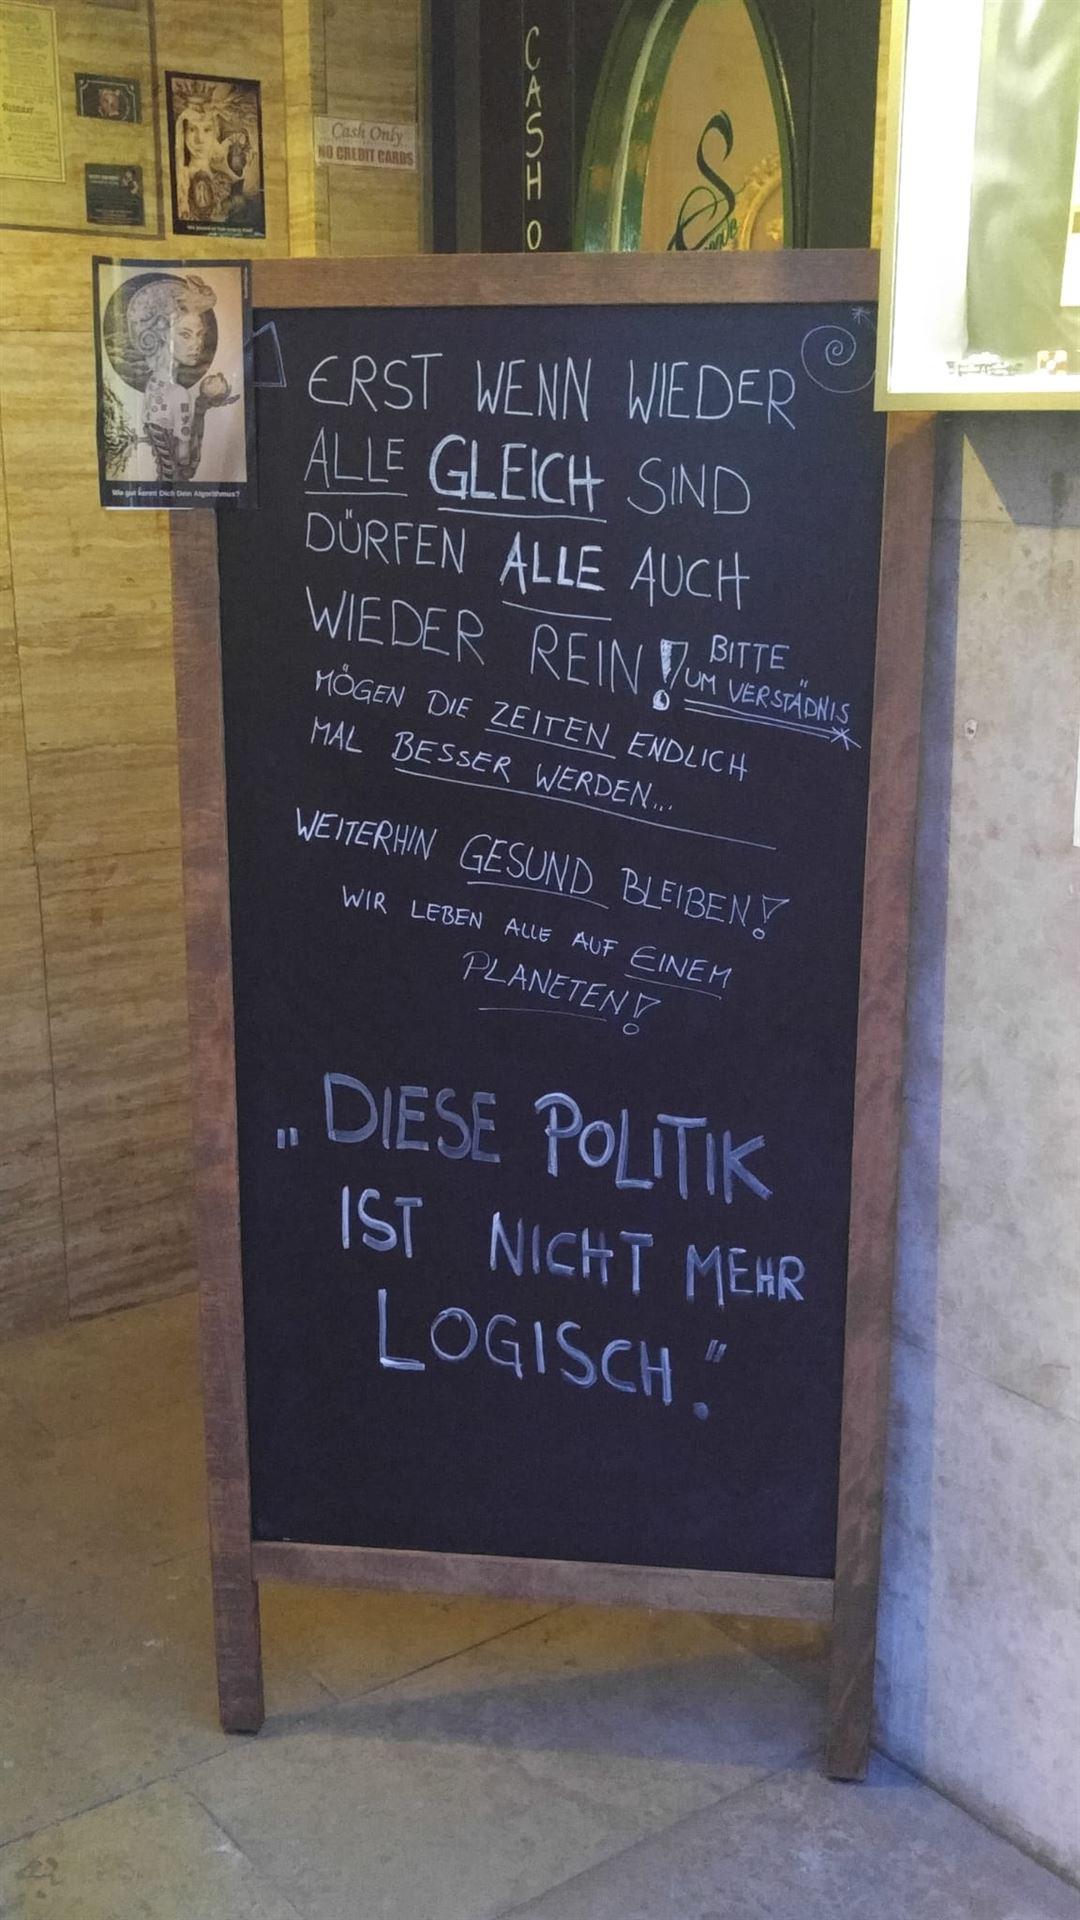 CASH O
Cash Only
NO CREDIT CARDS
S
Wie gut kennt Dich Dein Algorithmus?
ERST WENN WIEDER
ALLE GLEICH SIND
DÜRFEN ALLE AUCH
WIEDER REIN!
BITTE
UM VERSTÄDNIS
MÖGEN DIE ZEITEN ENDLICH
MAL BESSER WERDEN...
WEITERHIN GESUND BLEIBEN!
WIR LEBEN ALLE AUF EINEM
PLANETEN!
„DIESE POLITIK
IST NICHT MEHR
LOGISCH."